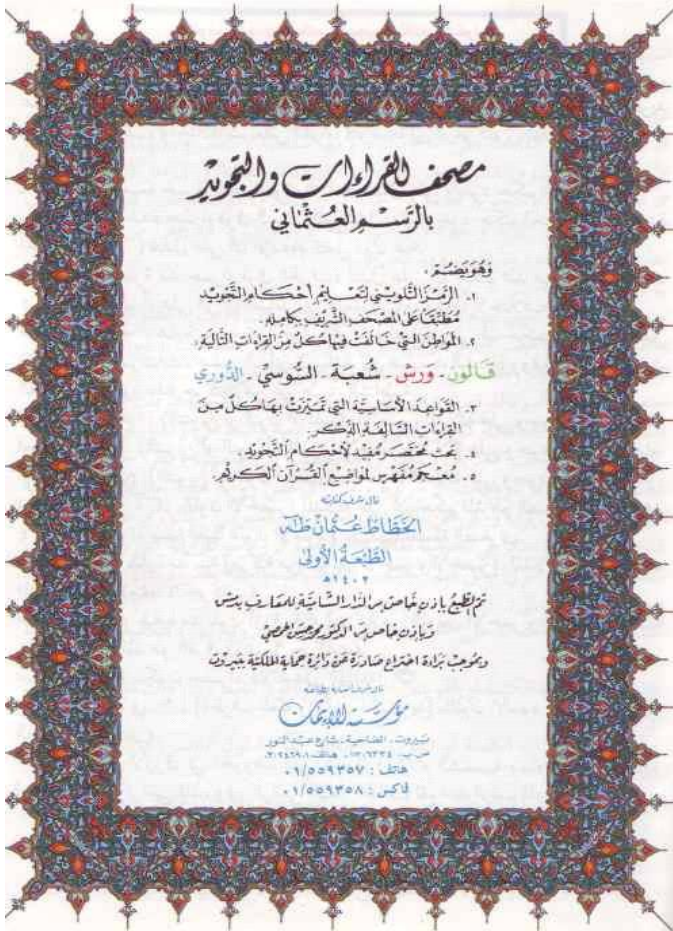 مصحف القراءات والتجويد
بالرّسم العُثماني
وَهُوَ يَضُمّ :
١. الرّمز التّلويني لتعليم أحكام التّجويد
مُطبّقًا على المصحف الشّريف بكامله.
٢. المواطن التي خالفت فيها كلّ من القراءات التّالية:
قالون - ورش - شُعبة - السّوسيّ - الدُّوري
٣. القواعد الأساسيّة التي تميّزت بها كلّ من
القراءات السّالفة الذّكر.
٤. بحث مختصر مُفيد لأحكام التّجويد.
٥. مُعجم مُفهرس لمواضيع القُرآن الكريم.
نال شرف كتابته
الخطّاط عُثمان طه
الطّبعَة الأولى
١٤٠٢ هـ
تمّ الطبع بإذن خاص من الدّار الشّاميّة للمعارف بدمشق
وبإذن خاص من الدكتور محمد حسن الحمصي
وبموجب براءة اختراع صادرة عن دائرة حماية الملكيّة ببيروت
نال شرف
مؤسّسة الإيمان
بيروت - الضاحية - شارع عبد النور
ص.ب هاتف
هاتف : ٠١/٥٥٩٣٥٧
فاكس : ٠١/٥٥٩٣٥٨